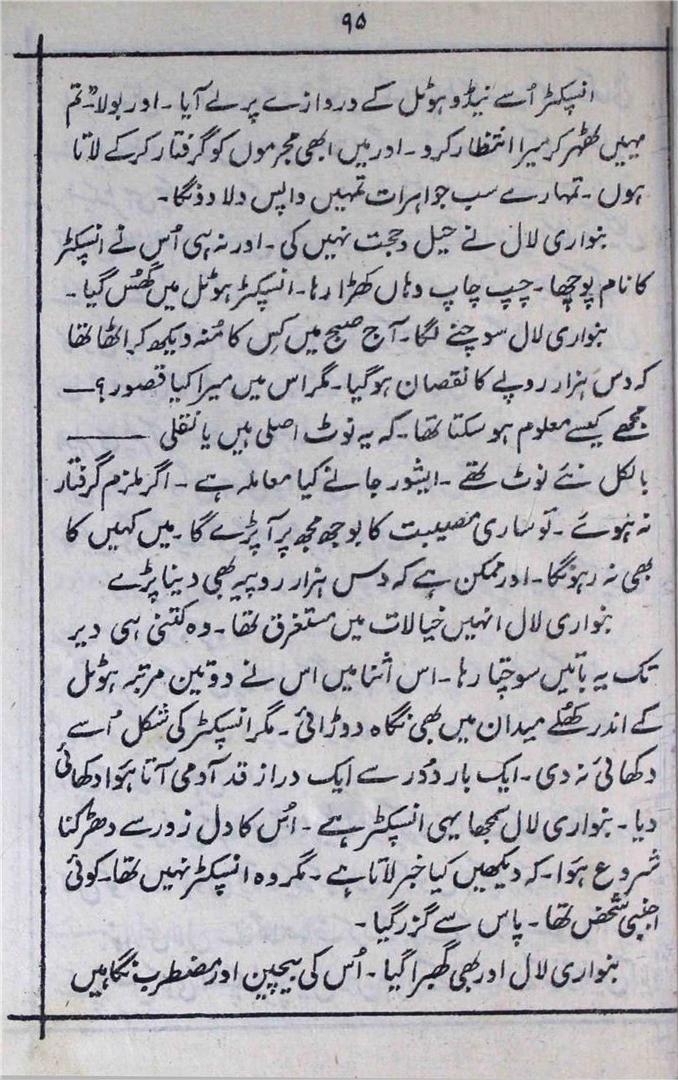 ۹۵
انسپکٹر اُسے نیڈو ہوٹل کے دروازے پر لے آیا۔ اور بولا "تم
یہیں ٹھہر کر میرا انتظار کرو۔ اور میں ابھی مجرموں کو گرفتار کر کے لاتا
ہوں۔ تمہارے سب جواہرات تمہیں واپس دلا دونگا۔
بنواری لال نے حیل وحجت نہیں کی۔ اور نہ ہی اُس نے انسپکٹر
کا نام پوچھا۔ چپ چاپ وہاں کھڑا رہا۔ انسپکٹر ہوٹل میں گھُس گیا۔
بنواری لال سوچنے لگا۔ آج صبح میں کِس کا مُنہ دیکھ کر اٹھا تھا
کہ دس ہزار روپے کا نقصان ہو گیا۔ مگر اس میں میرا کیا قصور؟—
مجھے کیسے معلوم ہو سکتا تھا۔ کہ یہ نوٹ اصلی ہیں یا نقلی ——
بالکل نئے نوٹ تھے۔ ایشور جانے کیا معاملہ ہے۔ اگر ملزم گرفتار
نہ ہوئے۔ تو ساری مصیبت کا بوجھ مجھ پر آ پڑے گا۔ میں کہیں کا
بھی نہ رہونگا۔ اور ممکن ہے کہ دس ہزار روپیہ بھی دینا پڑے
بنواری لال انہیں خیالات میں مستغرق تھا۔ وہ کتنی ہی دیر
تک یہ باتیں سوچتا رہا۔ اس اثنا میں اس نے دو تین مرتبہ ہوٹل
کے اندر کھُلے میدان میں بھی نگاہ دوڑائی۔ مگر انسپکٹر کی شکل اُسے
دکھائی نہ دی۔ ایک بار دُور سے ایک دراز قد آدمی آتا ہوَا دکھائی
دیا۔ بنواری لال سمجھا یہی انسپکٹر ہے۔ اُس کا دل زور سے دھڑکنا
شروع ہوَا۔ کہ دیکھیں کیا خبر لاتا ہے۔ مگر وہ انسپکٹر نہیں تھا۔ کوئی
اجنبی شخص تھا۔ پاس سے گزر گیا۔
بنواری لال اور بھی گھبرا گیا۔ اُس کی بیچین اور مضطرب نگاہیں